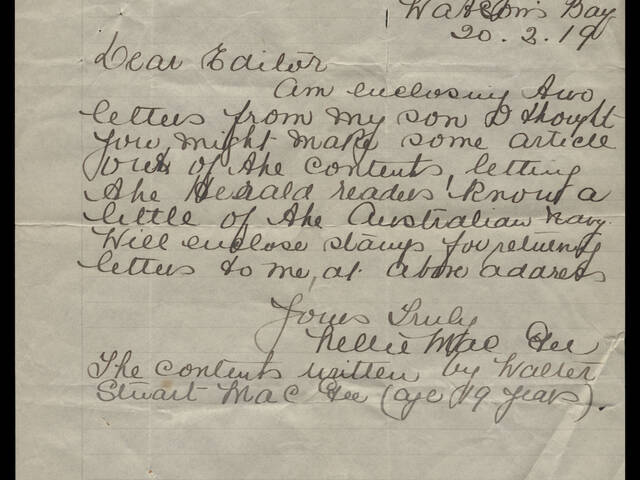 Watson's Bay
20.2.19
Dear Editor
Am enclosing two
letters from my son I thought
you might make some article
out of the contents, letting
the Herald readers know a
little of the Australian navy.
Will enclose stamps for returning
letters to me, at above address
Yours Truly
Nellie Mac Gee
The contents written by Walter
Stuart Mac Gee (age 19 years).